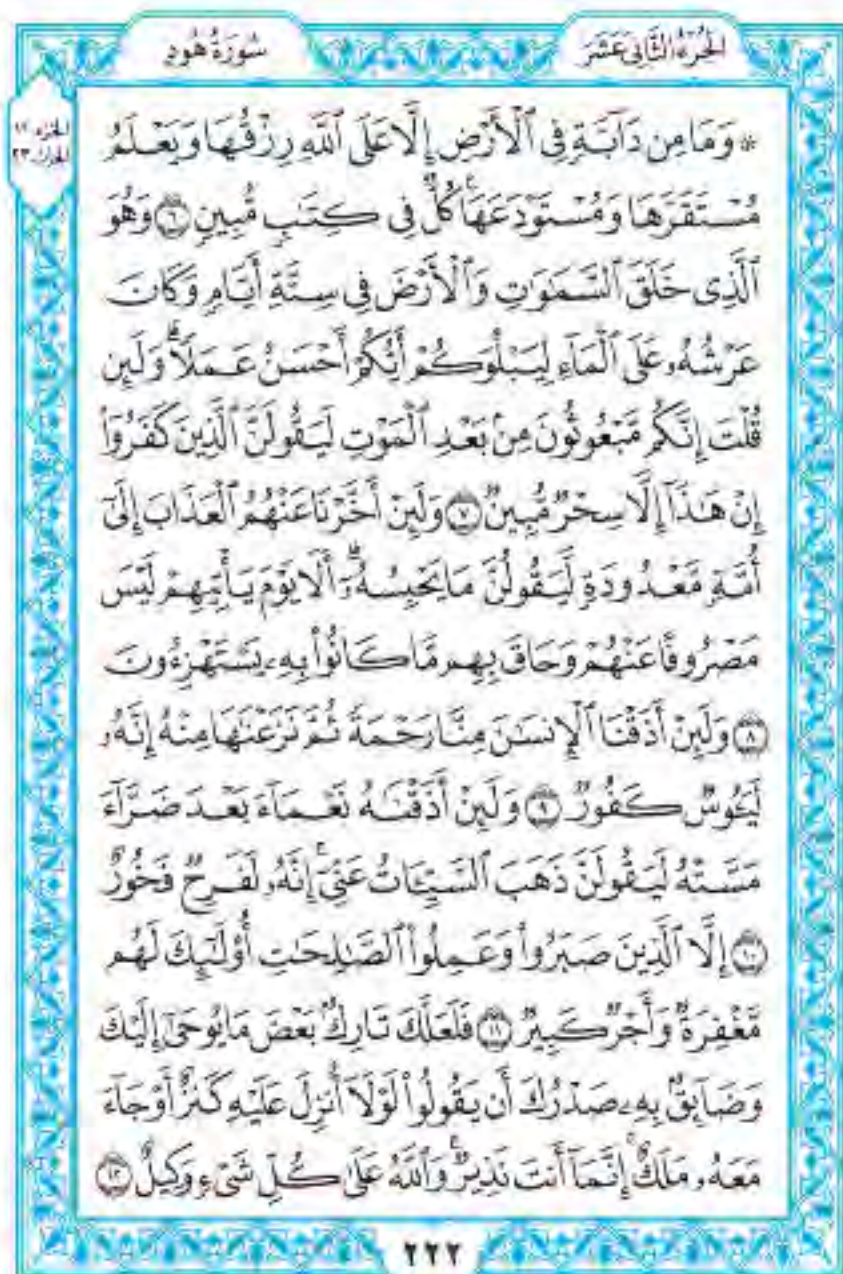 الجُزْءُ الثَّانِي عَشَرَ
سُورَةُ هُودٍ
الجزء ١٢
الحزب ٢٣
۞ وَمَا مِن دَآبَّةٍ فِي ٱلْأَرْضِ إِلَّا عَلَى ٱللَّهِ رِزْقُهَا وَيَعْلَمُ
مُسْتَقَرَّهَا وَمُسْتَوْدَعَهَاۚ كُلٌّ فِي كِتَٰبٍ مُّبِينٍ ٦ وَهُوَ
ٱلَّذِي خَلَقَ ٱلسَّمَٰوَٰتِ وَٱلْأَرْضَ فِي سِتَّةِ أَيَّامٍ وَكَانَ
عَرْشُهُۥ عَلَى ٱلْمَآءِ لِيَبْلُوَكُمْ أَيُّكُمْ أَحْسَنُ عَمَلًاۗ وَلَئِن
قُلْتَ إِنَّكُم مَّبْعُوثُونَ مِنۢ بَعْدِ ٱلْمَوْتِ لَيَقُولَنَّ ٱلَّذِينَ كَفَرُوٓاْ
إِنْ هَٰذَآ إِلَّا سِحْرٌ مُّبِينٌ ٧ وَلَئِنْ أَخَّرْنَا عَنْهُمُ ٱلْعَذَابَ إِلَىٰٓ
أُمَّةٍ مَّعْدُودَةٍ لَّيَقُولُنَّ مَا يَحْبِسُهُۥٓۗ أَلَا يَوْمَ يَأْتِيهِمْ لَيْسَ
مَصْرُوفًا عَنْهُمْ وَحَاقَ بِهِم مَّا كَانُواْ بِهِۦ يَسْتَهْزِءُونَ
٨ وَلَئِنْ أَذَقْنَا ٱلْإِنسَٰنَ مِنَّا رَحْمَةً ثُمَّ نَزَعْنَٰهَا مِنْهُ إِنَّهُۥ
لَيَـُٔوسٌ كَفُورٌ ٩ وَلَئِنْ أَذَقْنَٰهُ نَعْمَآءَ بَعْدَ ضَرَّآءَ
مَسَّتْهُ لَيَقُولَنَّ ذَهَبَ ٱلسَّيِّـَٔاتُ عَنِّيٓۚ إِنَّهُۥ لَفَرِحٌ فَخُورٌ
١٠ إِلَّا ٱلَّذِينَ صَبَرُواْ وَعَمِلُواْ ٱلصَّٰلِحَٰتِ أُوْلَٰٓئِكَ لَهُم
مَّغْفِرَةٌ وَأَجْرٌ كَبِيرٌ ١١ فَلَعَلَّكَ تَارِكٌۢ بَعْضَ مَا يُوحَىٰٓ إِلَيْكَ
وَضَآئِقٌۢ بِهِۦ صَدْرُكَ أَن يَقُولُواْ لَوْلَآ أُنزِلَ عَلَيْهِ كَنزٌ أَوْ جَآءَ
مَعَهُۥ مَلَكٌۚ إِنَّمَآ أَنتَ نَذِيرٌۚ وَٱللَّهُ عَلَىٰ كُلِّ شَيْءٍ وَكِيلٌ ١٢
٢٢٢